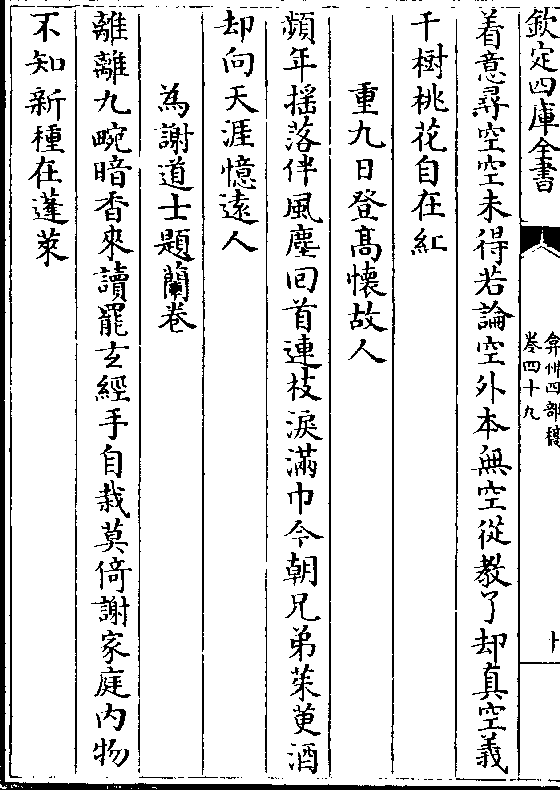 欽定四庫全書
弇州四部稿
卷四十九
十
着意尋空空未得若論空外本無空從教了却真空義
千樹桃花自在紅
重九日登髙懷故人
頻年揺落伴風塵回首連枝淚滿巾今朝兄弟茱萸酒
却向天涯憶逺人
為謝道士題蘭卷
離離九畹暗香來讀罷玄經手自栽莫倚謝家庭内物
不知新種在蓬萊